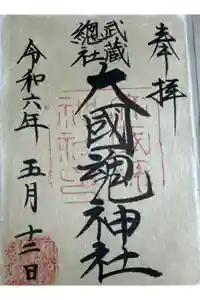 奉拝
武蔵
總社
大國魂神社
令和六年五月十二日